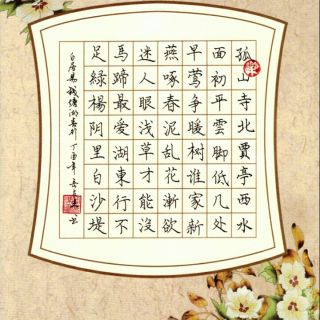 孤山寺北賈亭西水
面初平雲脚低几处
早莺争暖树谁家新
燕啄春泥乱花漸欲
迷人眼浅草才能沒
馬蹄最爱湖東行不
足綠楊阴里白沙堤
白居易錢塘湖春行 丁酉年